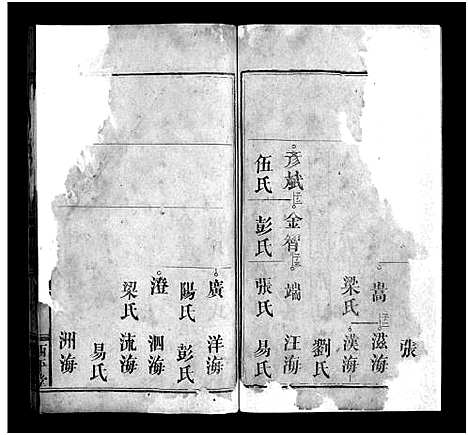 張
嵩 滋海
漢海
梁氏
劉氏
彥斌 金智 端 汪海
伍氏 彭氏 張氏 易氏
廣 洋海
陽氏 彭氏
澄 泗海
梁氏 流海
易氏
洲海